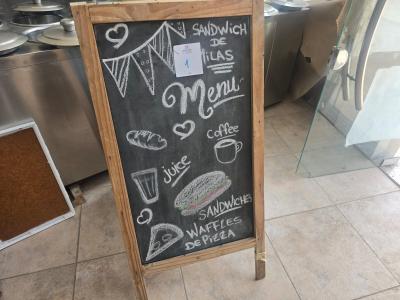 SANDWICH
DE
MILAS
1
Menu
Coffee
juice
SANDWICHES
WAFFLES
DE PIZZA